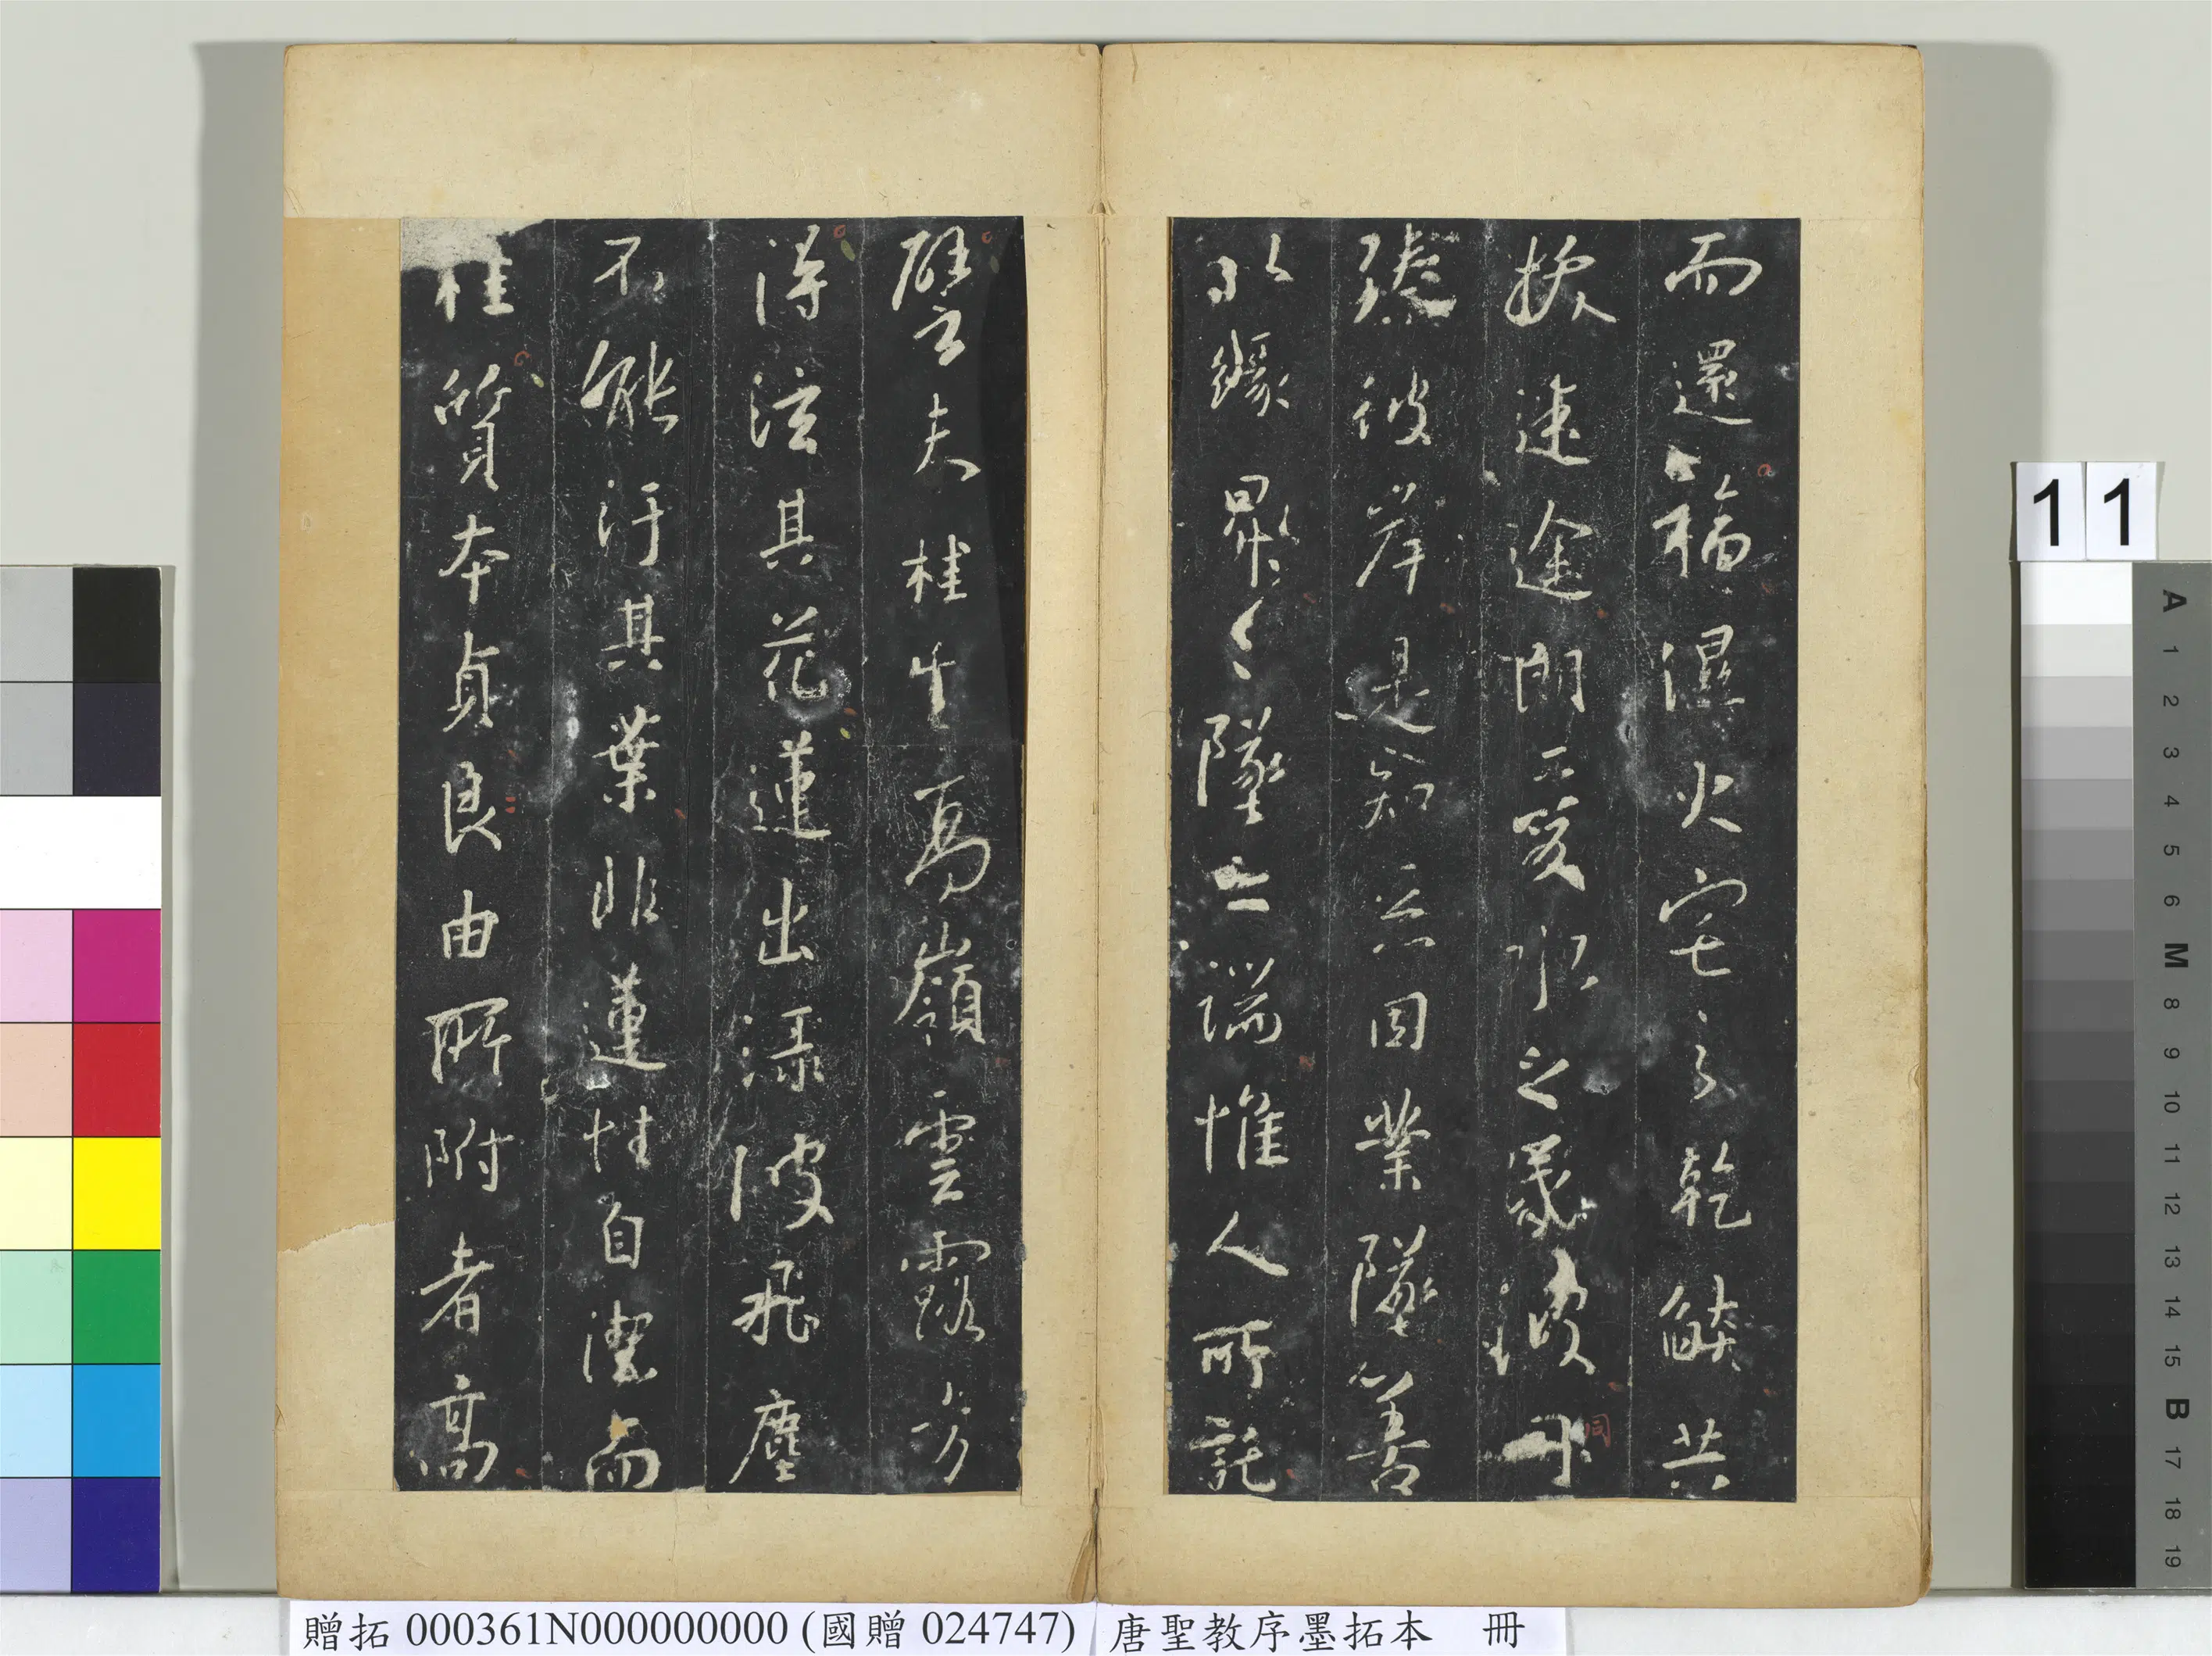 而還福濕火宅之乾焰共
拔迷途朗愛水之昏波同
同
臻彼岸是知惡因業墜善
以緣昇〻墜之端惟人所託
譬夫桂生高嶺雲露方
得泫其花蓮出淥波飛塵
不能汙其葉非蓮性自潔而
桂質本貞良由所附者高
11
A 1 2 3 4 5 6 M 8 9 10 11 12 13 14 15 B 17 18 19
贈拓 000361N000000000 (國贈 024747) 唐聖教序墨拓本 冊